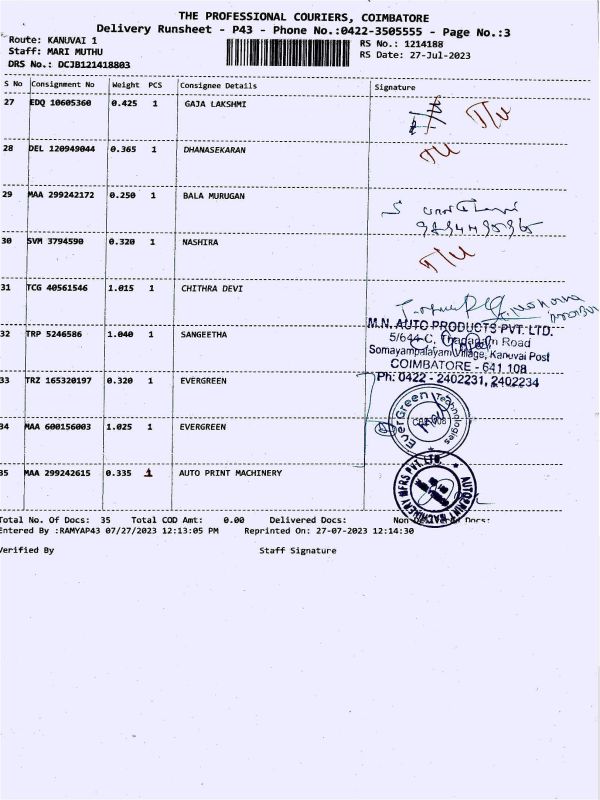 THE PROFESSIONAL COURIERS, COIMBATORE
Delivery Runsheet - P43 - Phone No.:0422-3505555 - Page No.:3
Route: KANUVAI 1
RS No.: 1214188
Staff: MARI MUTHU
RS Date: 27-Jul-2023
DRS No.: DCJB121418803
S No Consignment No Weight PCS Consignee Details Signature
27 EDQ 10605360 0.425 1 GAJA LAKSHMI
28 DEL 120949044 0.365 1 DHANASEKARAN
29 MAA 299242172 0.250 1 BALA MURUGAN
30 SVM 3794590 0.320 1 NASHIRA
31 TCG 40561546 1.015 1 CHITHRA DEVI
32 TRP 5246586 1.040 1 SANGEETHA
M.N. AUTO PRODUCTS PVT. LTD.
5/644-C, Thadagam Road
Somayampalayam Village, Kanuvai Post
COIMBATORE - 641 108
Ph: 0422 - 2402231, 2402234
33 TRZ 165320197 0.320 1 EVERGREEN
34 MAA 600156003 1.025 1 EVERGREEN
EverGreen Technologies
35 MAA 299242615 0.335 1 AUTO PRINT MACHINERY
AUTOPRINT MACHINERY MFRS PVT. LTD.
Total No. Of Docs: 35 Total COD Amt: 0.00 Delivered Docs: Non Docs:
Entered By :RAMYAP43 07/27/2023 12:13:05 PM Reprinted On: 27-07-2023 12:14:30
Verified By Staff Signature